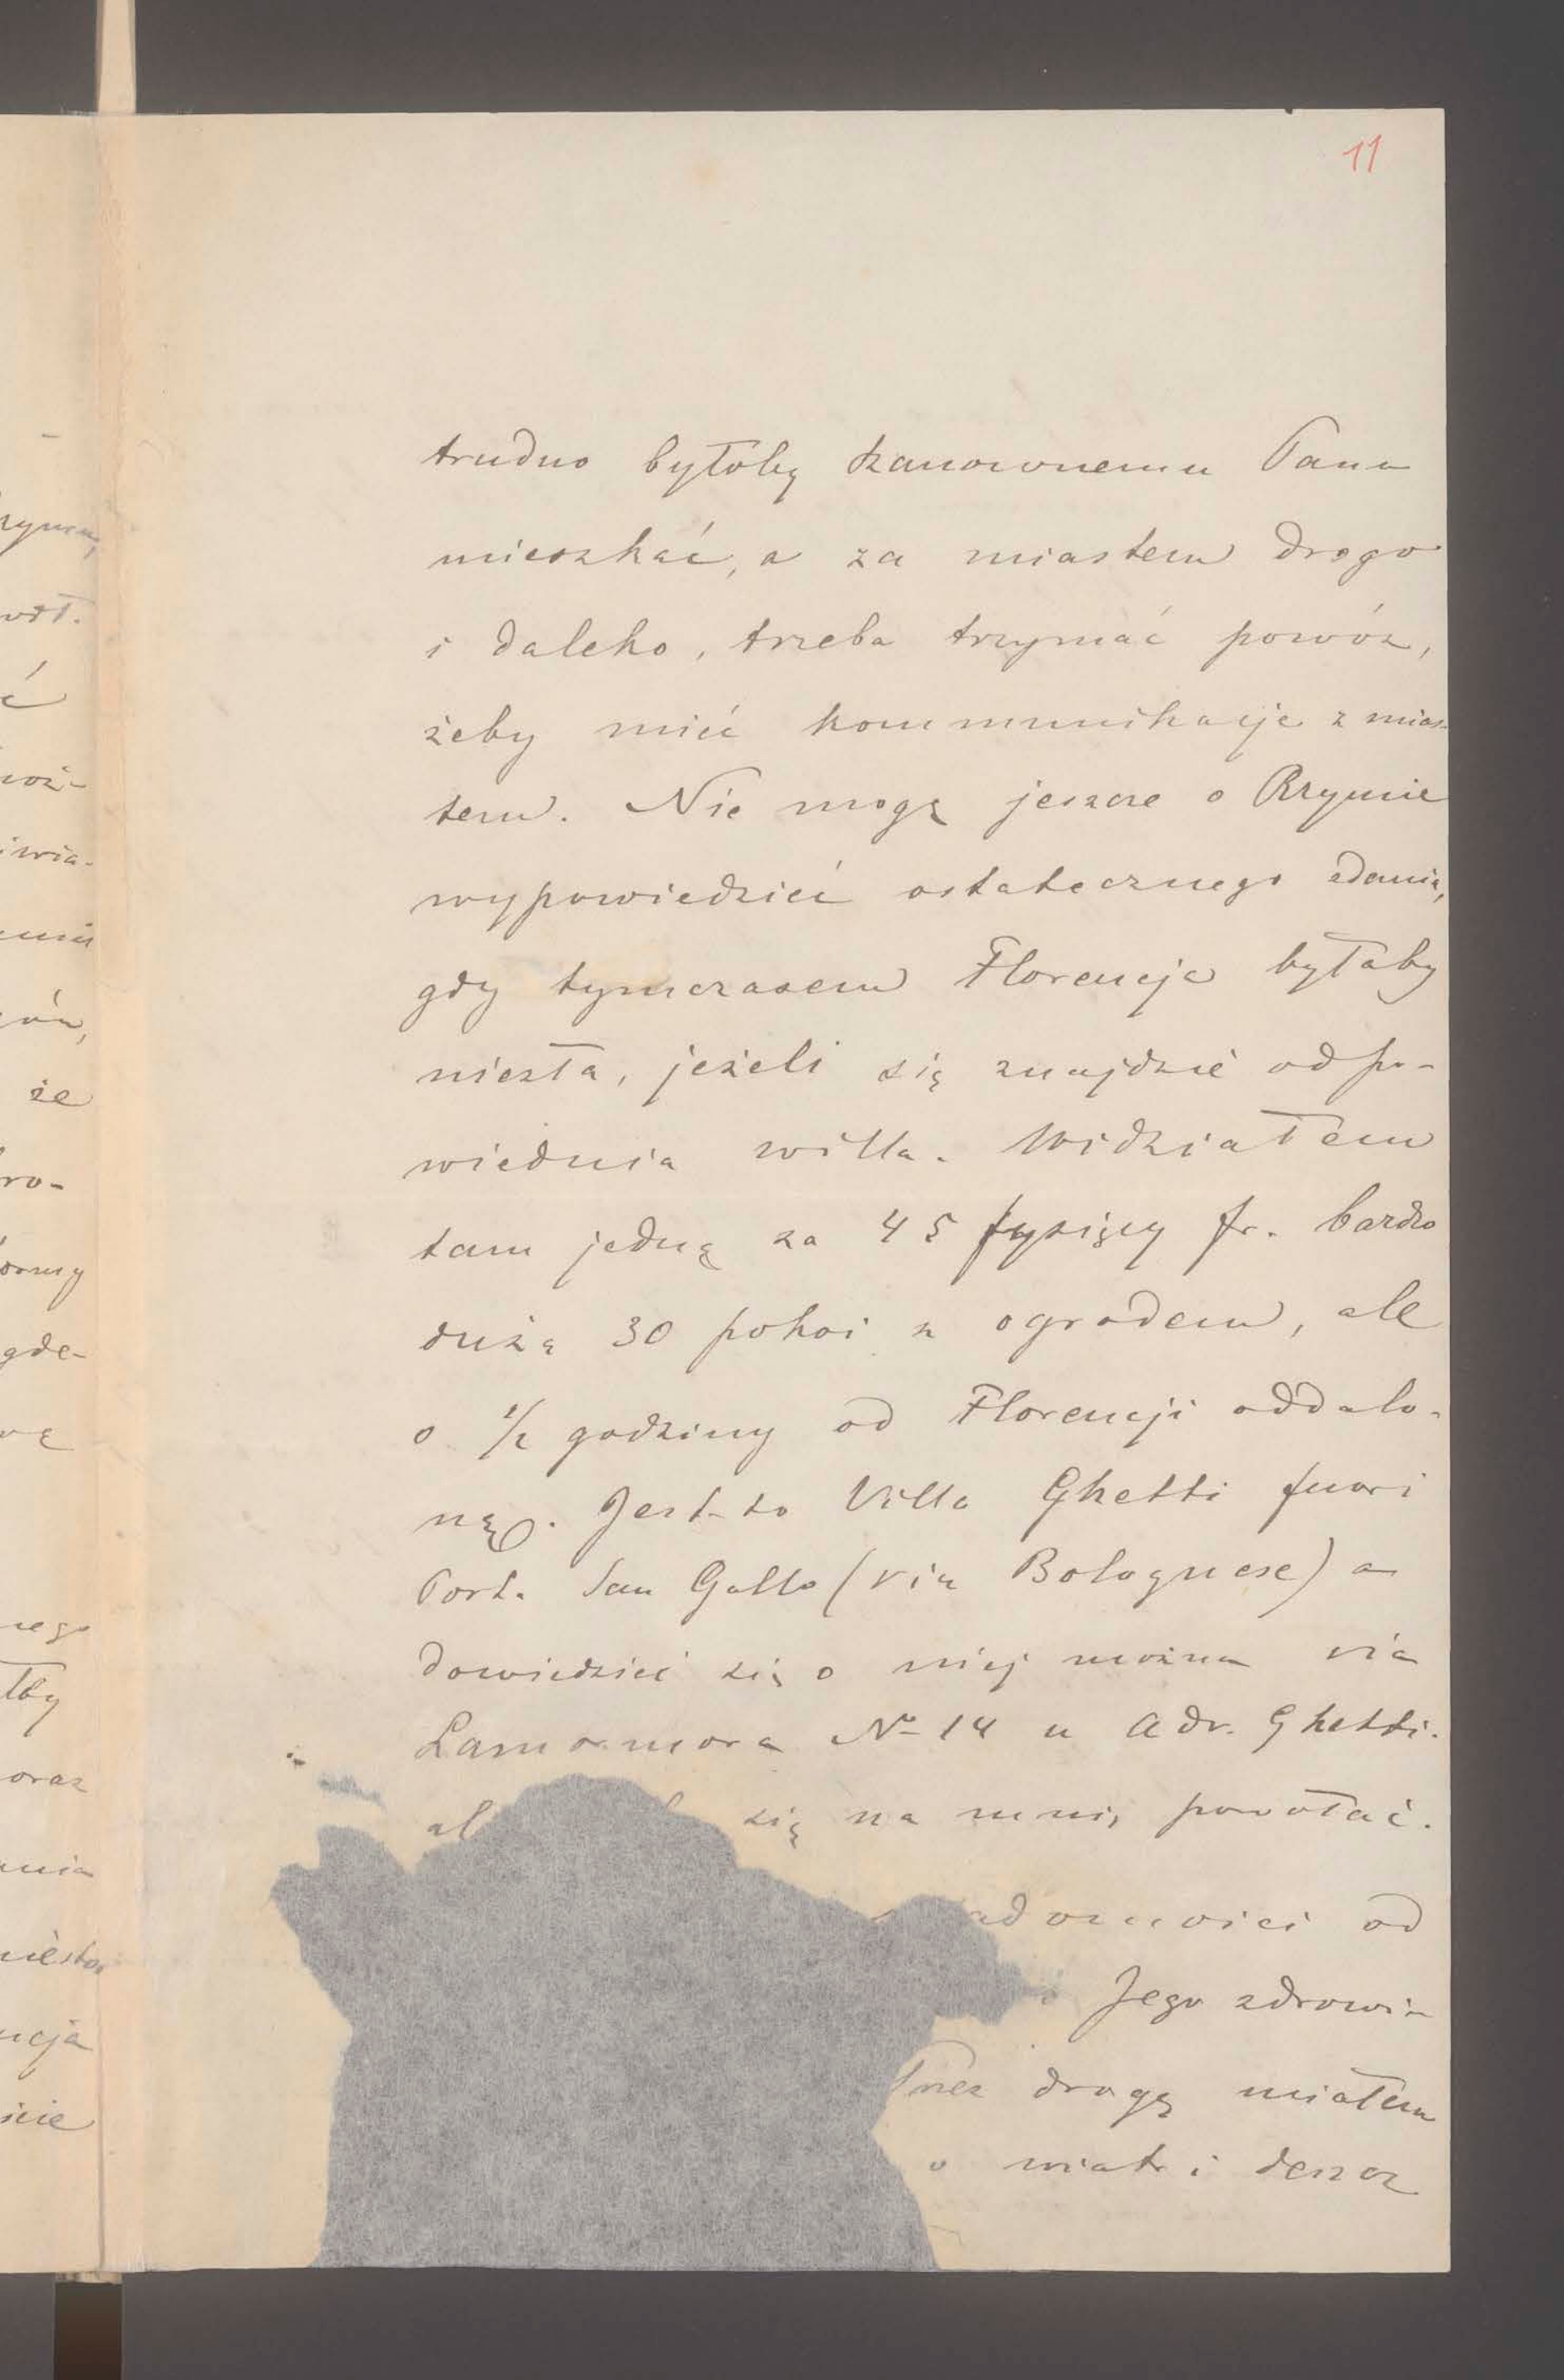 11
trudno byłoby szanownemu Panu
mieszkać, a za miastem drogo
i daleko, trzeba trzymać powóz,
żeby mieć kommunikacje z mias-
tem. Nie mogę jeszcze o Rzymie
wypowiedzieć ostatecznego zdania,
gdy tymczasem Florencja byłaby
niezła, jeżeli się znajdzie odpo-
wiednia willa. Widziałem
tam jedną za 45 tysięcy fr. bardzo
dużą 30 pokoi z ogrodem, ale
o 1/2 godziny od Florencji oddalo-
ną. Jest-to Villa Ghetti fuori
Port. San Gallo (via Bolognese) a
dowiedzieć się o niej można via
Lamarmora No 14 u Adr. Ghetti.
al się na mnie powołać.
adomości od
Jego zdrowia
Przez drogę miałem
o wiatr i deszcz